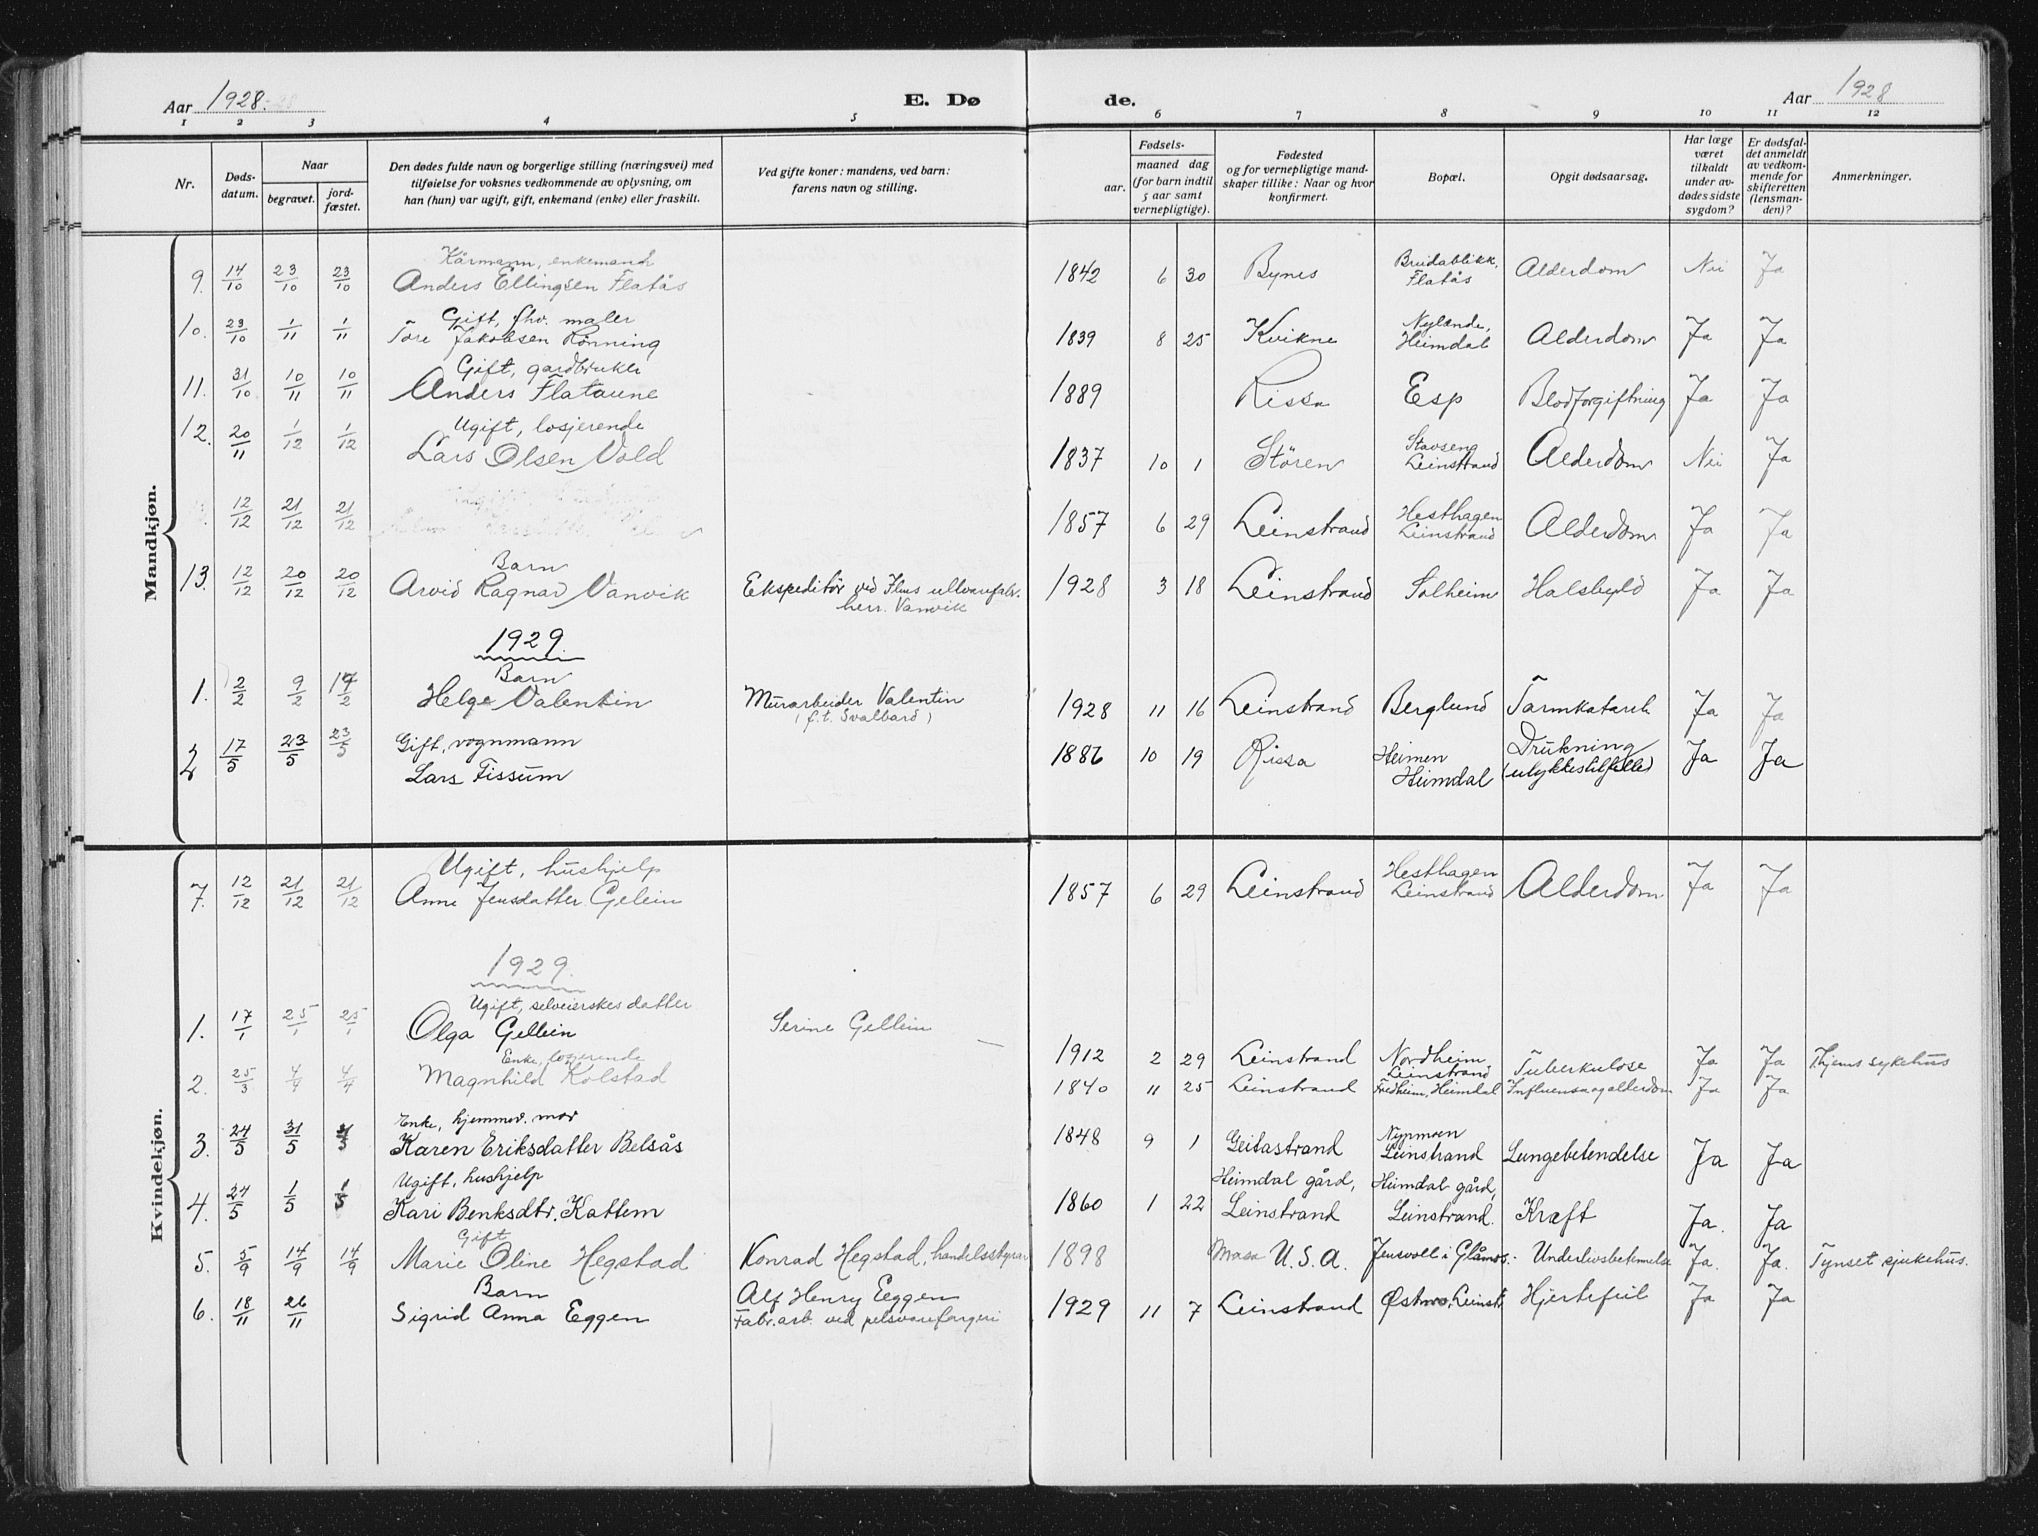 Aar 1928. E. Dø de. Aar 1928
1 2 3 4 5 6 7 8 9 10 11 12
Nr. Døds-datum. Naar begravet. jord-fæstet. Den dødes fulde navn og borgerlige stilling (næringsvei) med tilføielse for voksnes vedkommende av oplysning, om han (hun) var ugift, gift, enkemand (enke) eller fraskilt. Ved gifte koner: mandens, ved barn: farens navn og stilling. Fødsels- aar. maaned dag (for barn indtil 5 aar samt vernepligtige). Fødested og for vernepligtige mand-skaper tillike: Naar og hvor konfirmert. Bopæl. Opgit dødsaarsag. Har læge været tilkaldt under av-dødes sidste sygdom? Er dødsfal-det anmeldt av vedkom-mende for skifteretten (lensman-den)? Anmerkninger.
Mandkjøn.
Kårmann, enkemand
9. 14/10 23/10 23/10 Anders Ellingsen Flatås 1842 6 30 Bynes Breidablikk, Flatås Alderdom Nei Ja
Gift, fhv. maler
10. 23/10 1/11 1/11 Tore Jakobsen Rönning 1839 8 25 Kvikne Nylænde, Heimdal Alderdom Ja Ja
Gift, gardbruker
11. 31/10 10/11 10/11 Anders Flataune 1889 Rissa Esp Blodforgiftning Ja Ja
Ugift, losjerende
12. 20/11 1/12 1/12 Lars Olsen Vold 1837 10 1 Stören Stavseng Leinstrand Alderdom Nei Ja
12/12 21/12 21/12 1857 6 29 Leinstrand Hesthagen Leinstrand Alderdom Ja Ja
Barn
13. 12/12 20/12 20/12 Arvid Ragnar Vanvik Ekspeditör ved Flus ullvarefabr. herr. Vanvik 1928 3 18 Leinstrand Solheim Halsbyld Ja Ja
1929
Barn
1. 2/2 9/2 17/2 Helge Valentin Murarbeider Valentin (f.t. Svalbard) 1928 11 16 Leinstrand Berglund Tarmkatarrh Ja Ja
Gift, vognmann
2 17/5 23/5 23/5 Lars Fissum 1886 10 19 Rissa Heimen Heimdal Drukning (ulykkestilfelle) Ja Ja
Kvindekjøn.
Ugift, hushjelp
7. 12/12 21/12 21/12 Anne Jensdatter Gelein 1857 6 29 Leinstrand Hesthagen Leinstrand Alderdom Ja Ja
1929.
Ugift, selveierskes datter
1. 17/1 25/1 25/1 Olga Gellein Serine Gellein 1912 2 29 Leinstrand Nordheim Leinstrand Tuberkulose Ja Ja Thjems sykehus
Enke, losjerende
2. 25/3 4/4 4/4 Magnhild Kolstad 1840 11 25 Leinstrand Fredheim, Heimdal Influensa og alderdom Ja Ja
Enke, hjemmev. mor
3. 24/5 31/5 Karen Eriksdatter Belsås 1848 9 1 Geitastrand Nypmoen Leinstrand Lungebetendelse Ja Ja
Ugift, hushjelp
4. 24/5 1/5 1/5 Kari Benksdtr. Kattem 1860 1 22 Heimdal gård, Leinstrand Heimdal gård, Leinstrand. Kræft Ja. Ja
Gift
5. 5/9 14/9 14/9 Marie Oline Hegstad Konrad Hegstad, handelsstyrer 1898 U.S.A. Jensvoll i Glåmos. Underlivsbetennelse Ja. Ja. Tynset sjukehus.
Barn
6. 18/11 26/11 Sigrid Anna Eggen Alf Henry Eggen Fabr.arb. ved pelsvarefargeri 1929 11 7 Leinstrand Østmo, Leinstr Hjertefeil Ja Ja